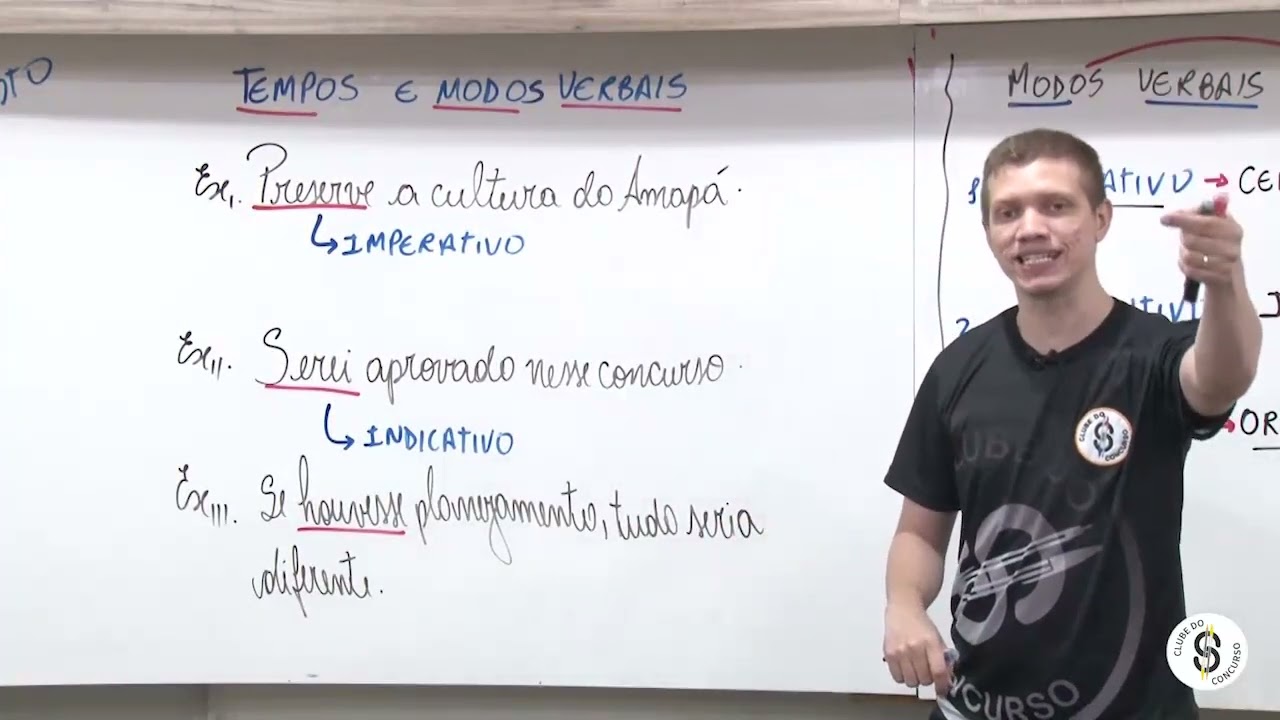 TEMPOS E MODOS VERBAIS
Ex I. Preserve a cultura do Amapá.
IMPERATIVO
Ex II. Serei aprovado nesse concurso.
INDICATIVO
Ex III. Se houvesse planejamento, tudo seria
diferente.
MODOS VERBAIS
CLUBE DO CONCURSO
CLUBE DO
CONCURSO
CLUBE DO CONCURSO